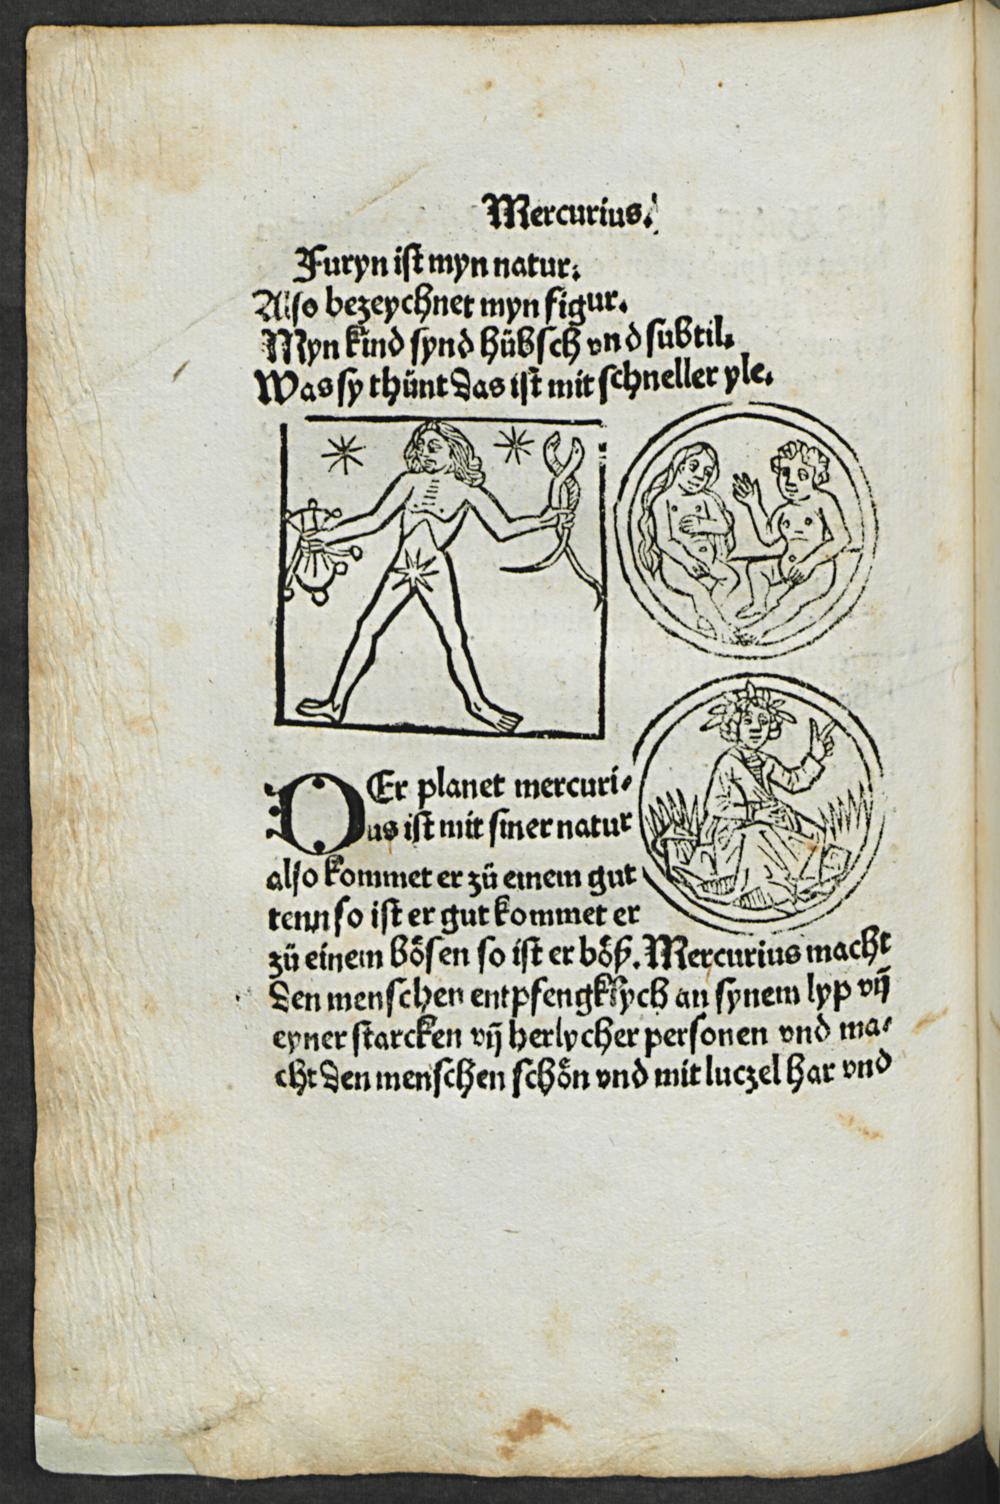 Mercurius.
Furyn ist myn natur.
Also bezeychnet myn figur.
Myn kind synd hübsch vnd subtil.
Was sy thünt das ist mit schneller yle.
DEr planet mercuri⸗
us ist mit siner natur
also kommet er zü einem gut
tenn so ist er gut kommet er
zü einem bösen so ist er böß. Mercurius macht
den menschen entpfengklych an synem lyp vn̄
eyner starcken vn̄ herlycher personen vnd ma⸗
cht den menschen schön vnd mit luczel har vnd